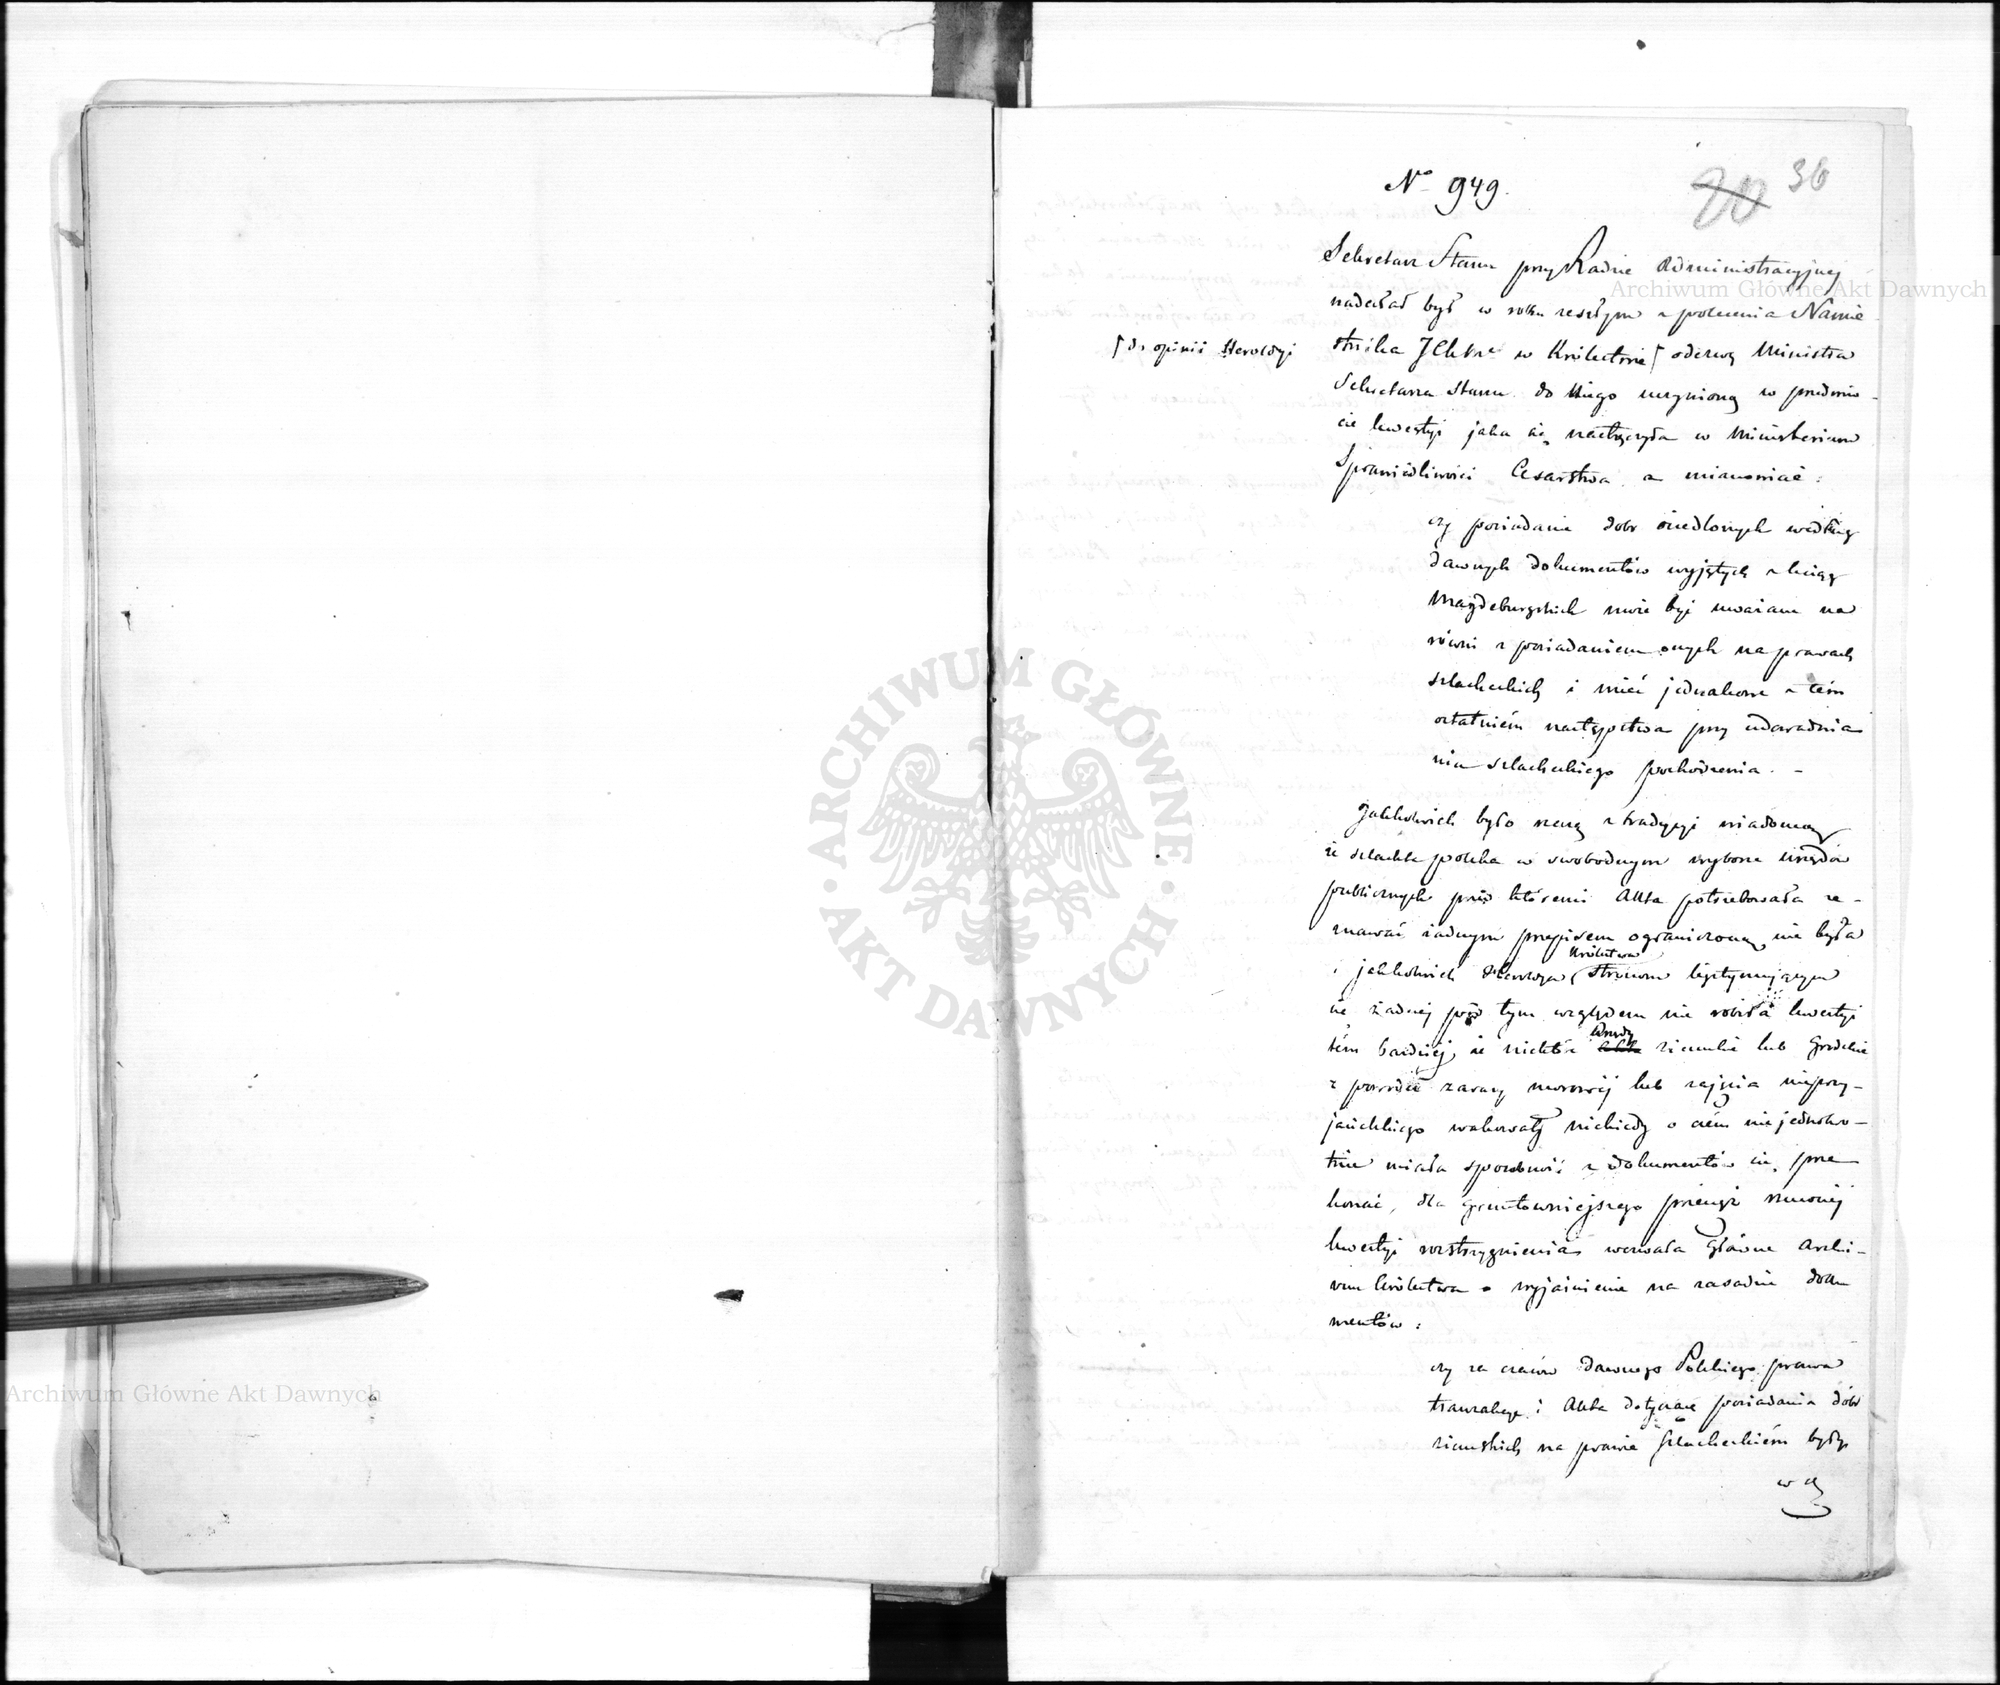 No 949.
20 36
Sekretarz Stanu przy Radzie Administracyjnej
nadesłał był w roku zeszłym z polecenia Namie-
⌈ do opinii Heroldyi
stnika JCKMci w Królestwie ⌈ odezwę Ministra
Sekretarza Stanu do Niego uczynioną w przedmio-
cie kwestyi jaka się nastręczyła w Ministerium
Sprawiedliwości Cesarstwa a mianowicie:
czy posiadanie dobr osiedlonych według
dawnych dokumentów wyjętych z ksiąg
Magdeburgskich może być uważane na
równi z posiadaniem onych na prawach
szlacheckich i mieć jednakowe z tém
ostatniém następstwa przy udowadnia
niu szlacheckiego pochodzenia. –
Jakkolwiek było rzeczą z tradycyi wiadomą
że szlachta polska w swobodnym wyborze urzędów
publicznych przed któremi Akta potrzebowała ze-
znawać żadnym przepisem ograniczoną nie była
i jakkolwiek Heroldya Królestwa stronom legitymującym
się żadnej pod tym względem nie robiła kwestyi
tém bardziej, że niektóre Urzędy akta ziemskie lub grodzkie
z powodu zarazy morowej lub zajęcia nieprzy-
jacielskiego wakowały niekiedy o czém niejednokro-
tnie miała sposobność z dokumentów się prze
konać, dla gruntowniejszego przecież rzeczonej
kwestyi rozstrzygnienia wezwała Główne Archi-
wum Królestwa o wyjaśnienie na zasadzie doku
mentów:
czy za czasów dawnego Polskiego prawa
tranzakcye i Akta dotyczące posiadania dóbr
ziemskich na prawie szlacheckiém były
Archiwum Główne Akt Dawnych
ARCHIWUM GŁÓWNE
AKT DAWNYCH
Archiwum Główne Akt Dawnych